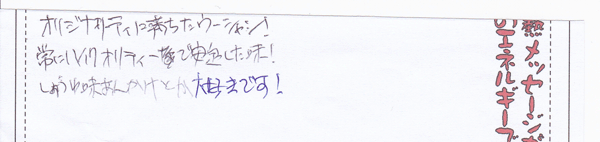 オリジナリティに満ちたウーシャン!
常にハイクオリティー で安定した味!
しょうゆ味あんかけとか大好きです!
熱メッセージが
のエネルギーブ